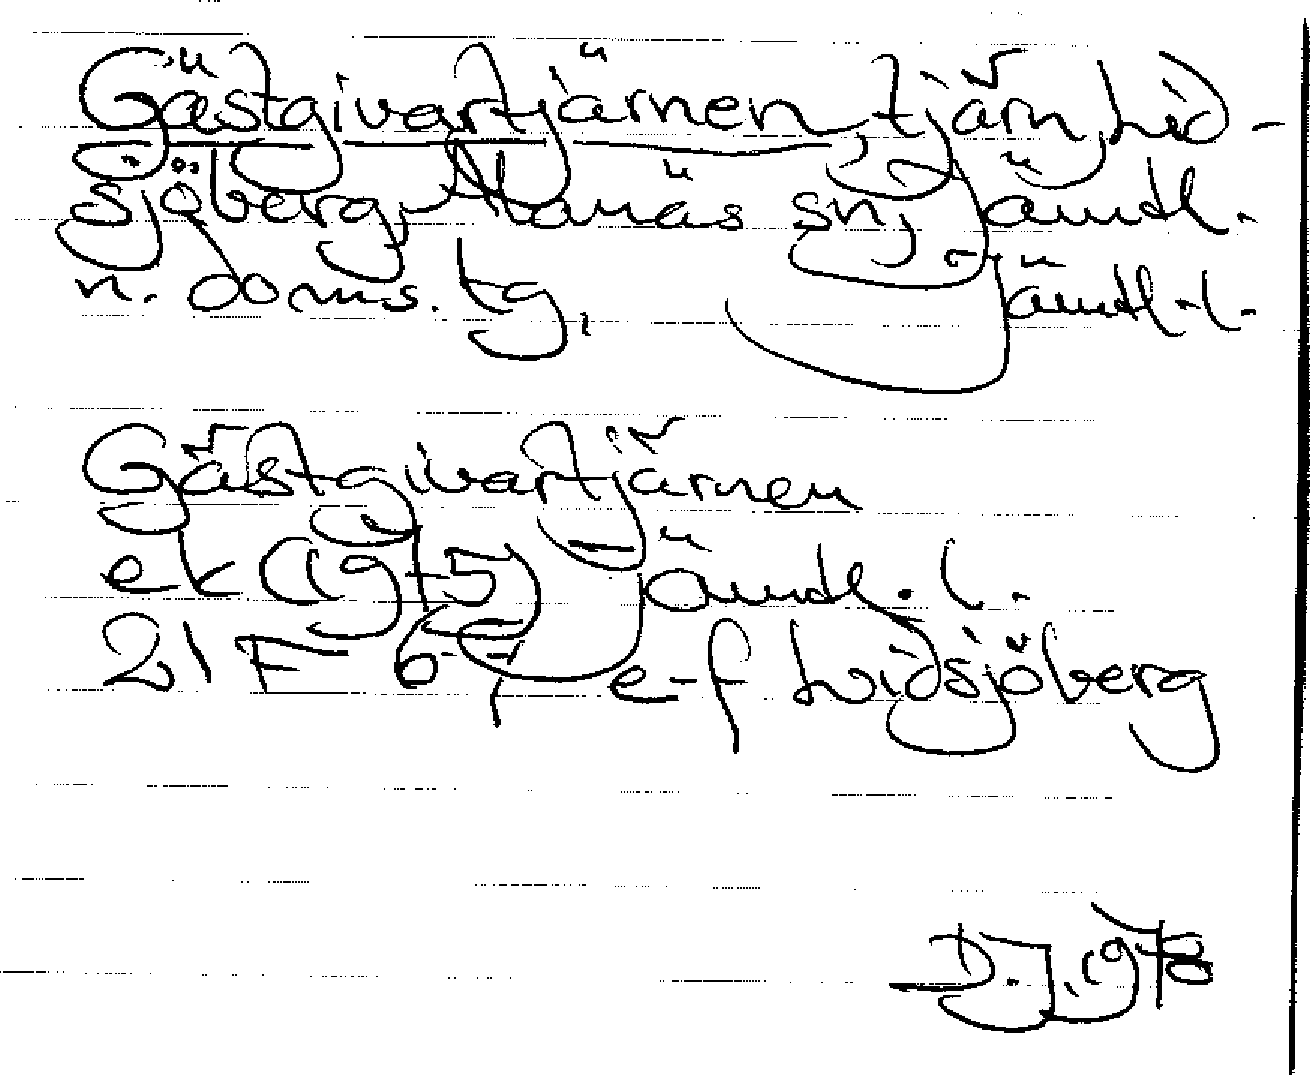 Gästgivartjärnen, tjärn, Lid-
sjöberg, Alanäs sn, Jämtl.
n. doms. tg, Jämtl. l.
Gästgivartjärnen
ek (1975) Jämtl. l.
21 F 6-7, e-f Lidsjöberg
D.J. 1978